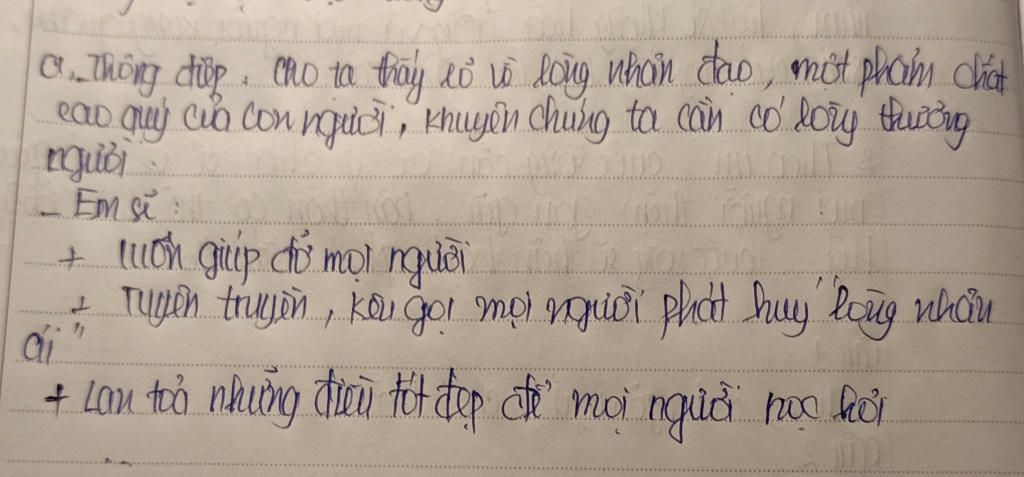 a, Thông điệp. cho ta thấy rõ về lòng nhân đạo, một phẩm chất
cao quý của con người, khuyên chúng ta cần có lòng thương
người.
- Em sẽ:
+ luôn giúp đỡ mọi người
+ Tuyên truyền, kêu gọi mọi người phát huy "lòng nhân
ái"
+ Lan toả những điều tốt đẹp để mọi người học hỏi